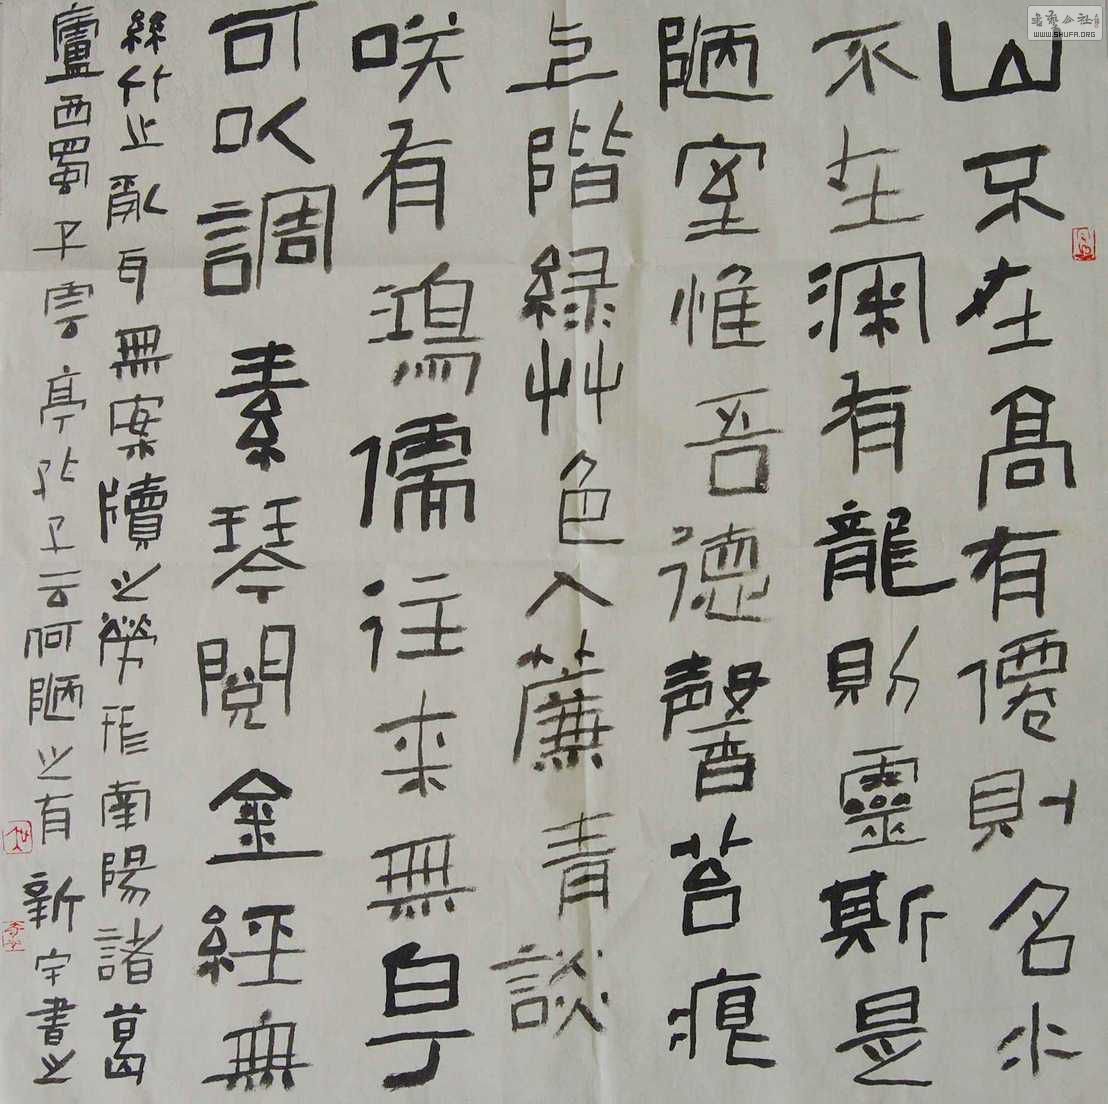 山不在高有僊則名水
不在深有龍則靈斯是
陋室惟吾德馨苔痕
上階緑艸色入簾青談
咲有鴻儒往来無白丁
可以調素琴閱金經無
絲竹之亂耳無案牘之勞形南陽諸葛
廬西蜀子雲亭孔子云何陋之有 新宇書之
書藝公社
WWW.SHUFA.ORG